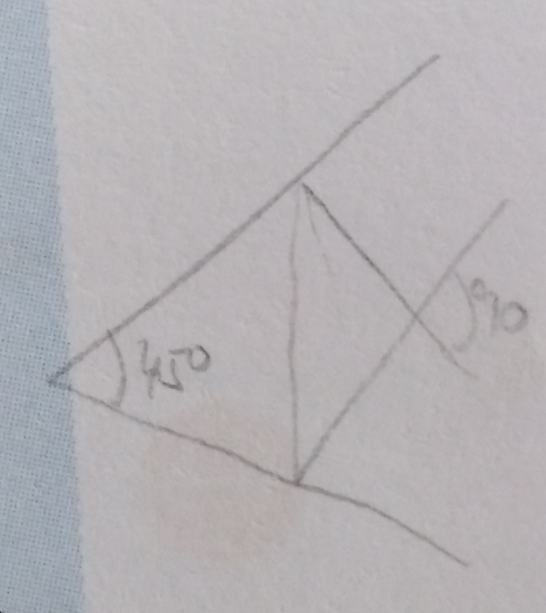 45°
90